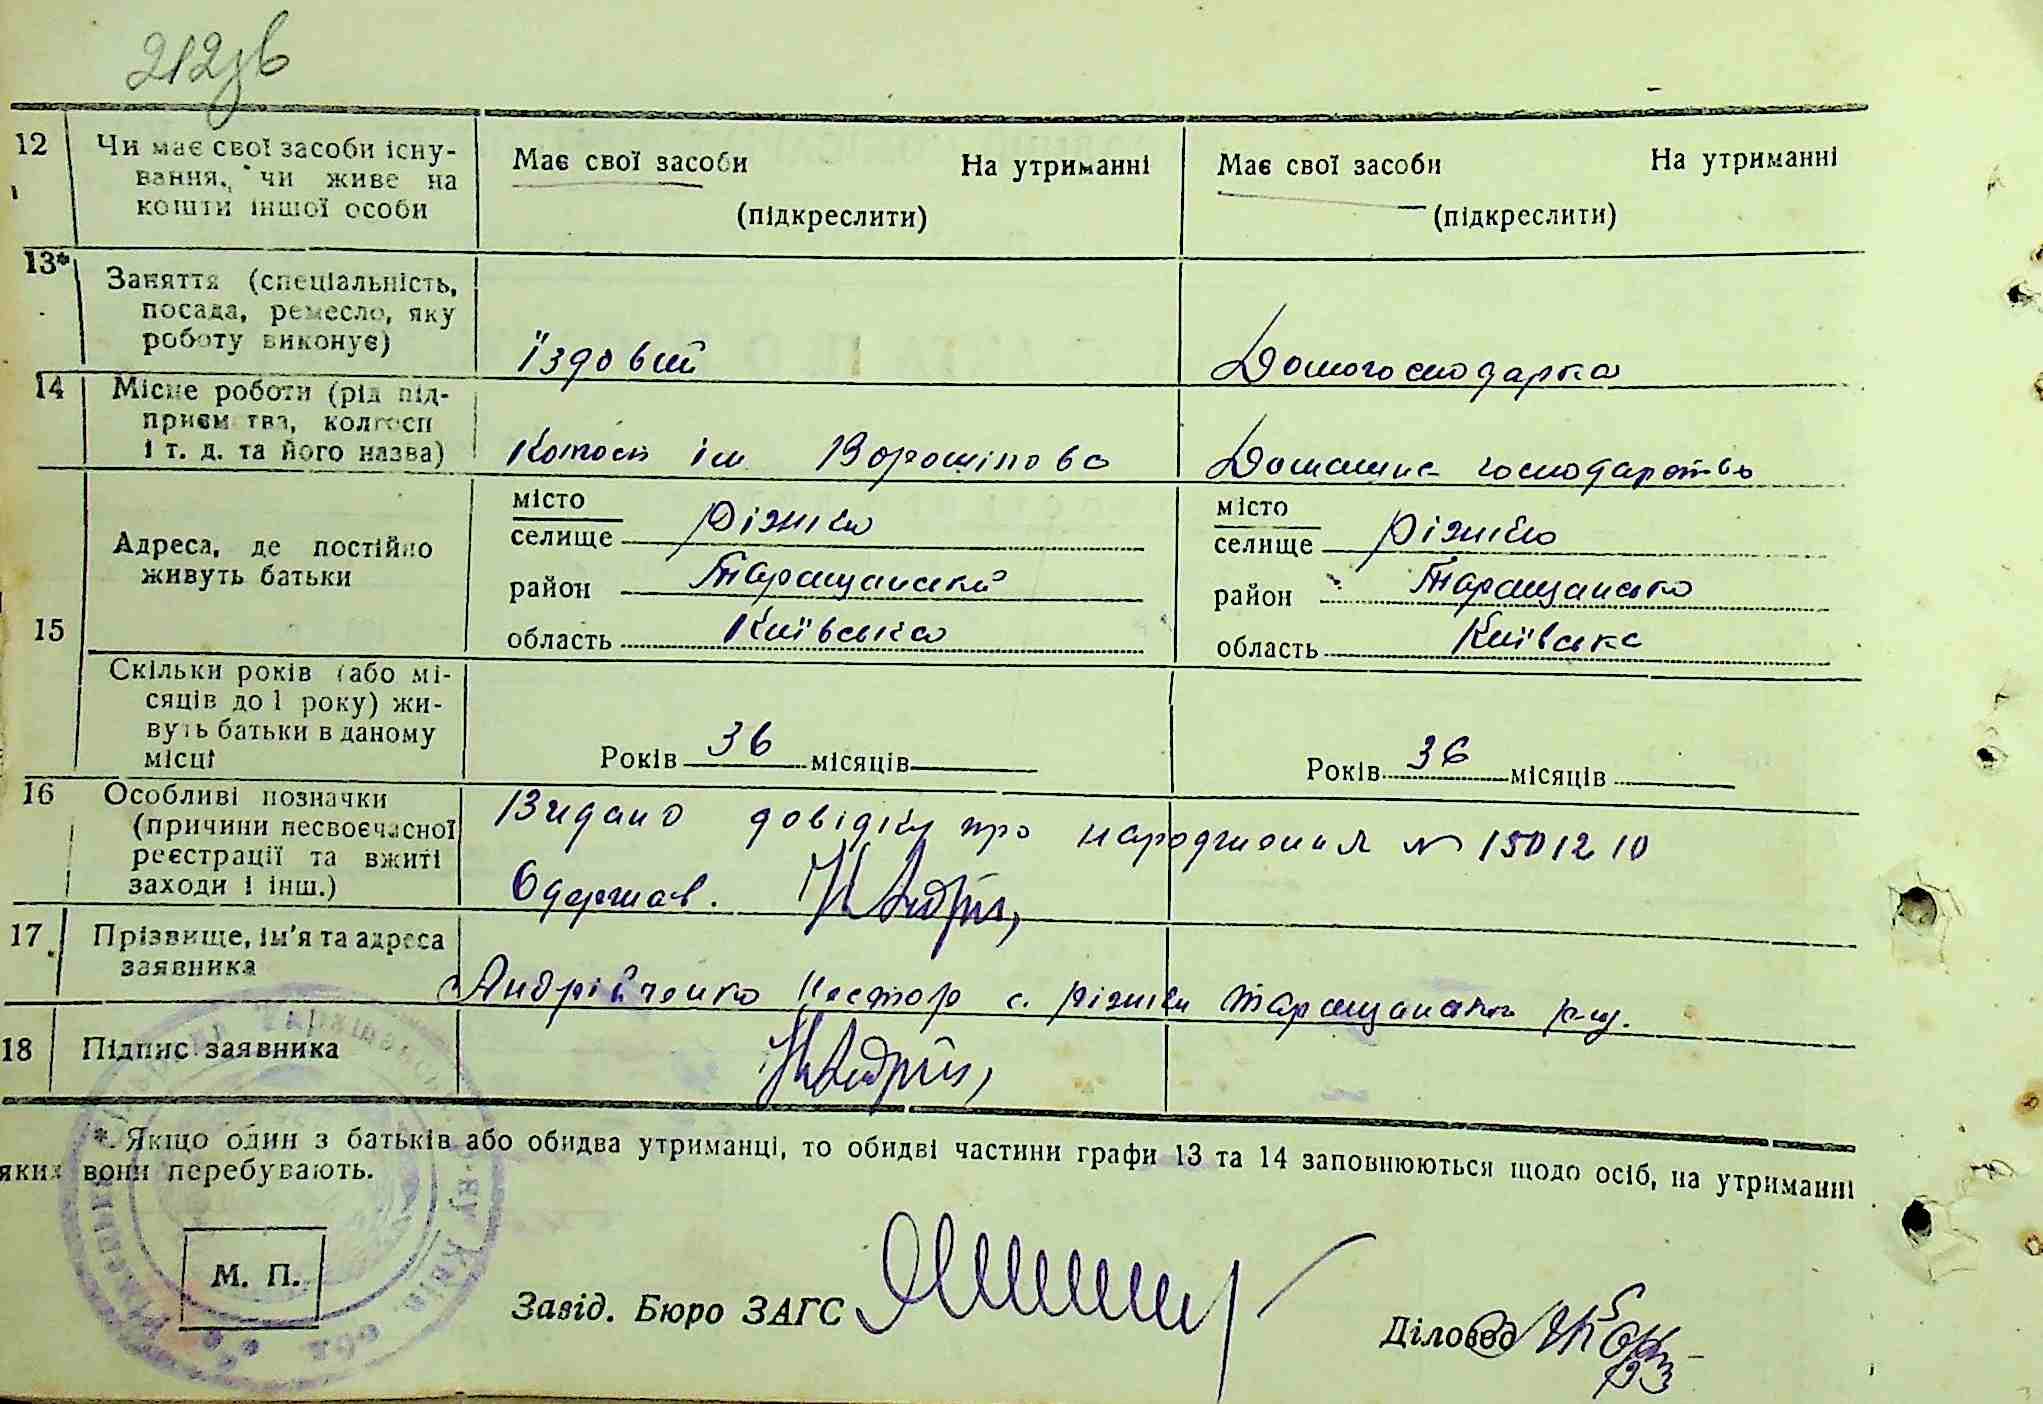 212зв
12 Чи має свої засоби існу- Має свої засоби На утриманні Має свої засоби На утриманні
вання, чи живе на
кошти іншої особи (підкреслити) (підкреслити)
13* Заняття (спеціальність,
посада, ремесло, яку
роботу виконує) Їздовий Домогосподарка
14 Місце роботи (рід під-
приємства, колгосп
і т. д. та його назва) Колгосп ім Ворошилова Домашнє господарство
місто місто
Адреса, де постійно селище Ріжки селище Ріжки
живуть батьки район Таращанський район Таращансько
15 область Київська область Київська
Скільки років (або мі-
сяців до 1 року) жи-
вуть батьки в даному
місці Років 36 місяців Років 36 місяців
16 Особливі позначки Видано довідку про народження № 1501210
(причини несвоєчасної
реєстрації та вжиті Одержав.
заходи і інш.)
17 Прізвище, ім'я та адреса
заявника Андрієвченко Нестор с. Ріжки Таращанський р-н.
18 Підпис заявника
* Якщо один з батьків або обидва утриманці, то обидві частини графи 13 та 14 заповнюються щодо осіб, на утриманні
яких вони перебувають.
М. П.
Завід. Бюро ЗАГС Діловод